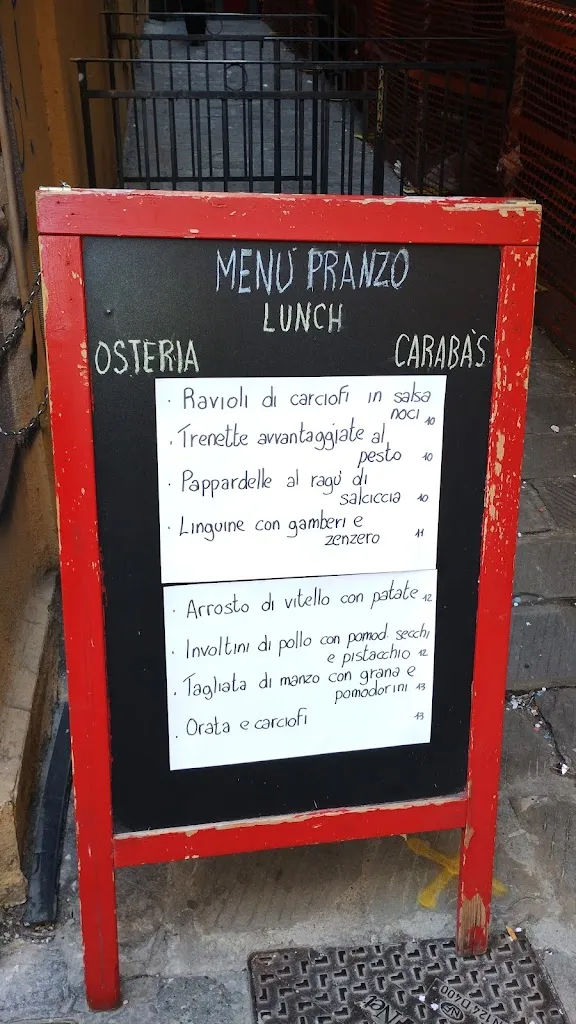 MENÚ PRANZO
LUNCH
OSTERIA CARABÀS
· Ravioli di carciofi in salsa
noci 10
· Trenette avvantaggiate al
pesto 10
· Pappardelle al ragù di
salciccia 10
· Linguine con gamberi e
zenzero 11
· Arrosto di vitello con patate 12
· Involtini di pollo con pomod. secchi
e pistacchio 12
· Tagliata di manzo con grana e
pomodorini 13
· Orata e carciofi 13